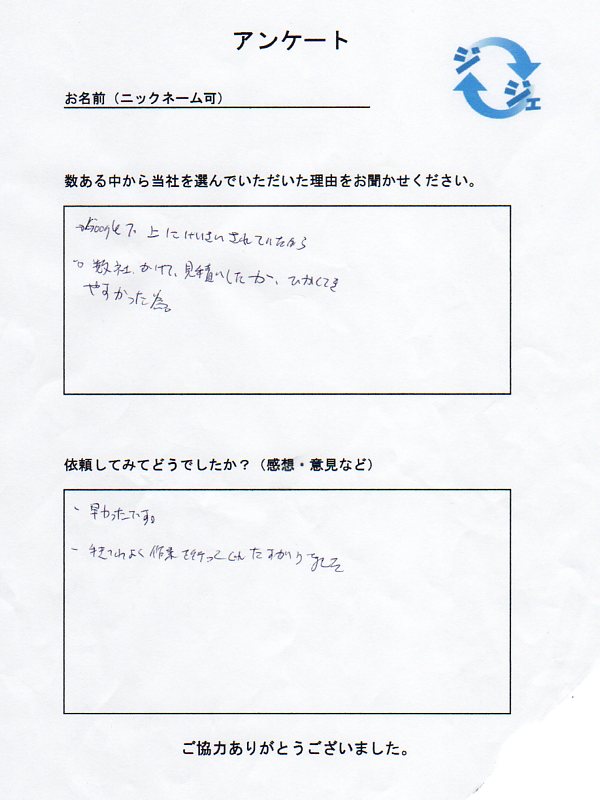 アンケート
ジジェ
お名前（ニックネーム可）
数ある中から当社を選んでいただいた理由をお聞かせください。
Googleで 上にけいさいされていたから
数社、かけて、見積りしたが、ひかくてき
やすかった為。
依頼してみてどうでしたか？（感想・意見など）
- 早かったです。
- 手ぎわよく作業を行って たすかりました
ご協力ありがとうございました。